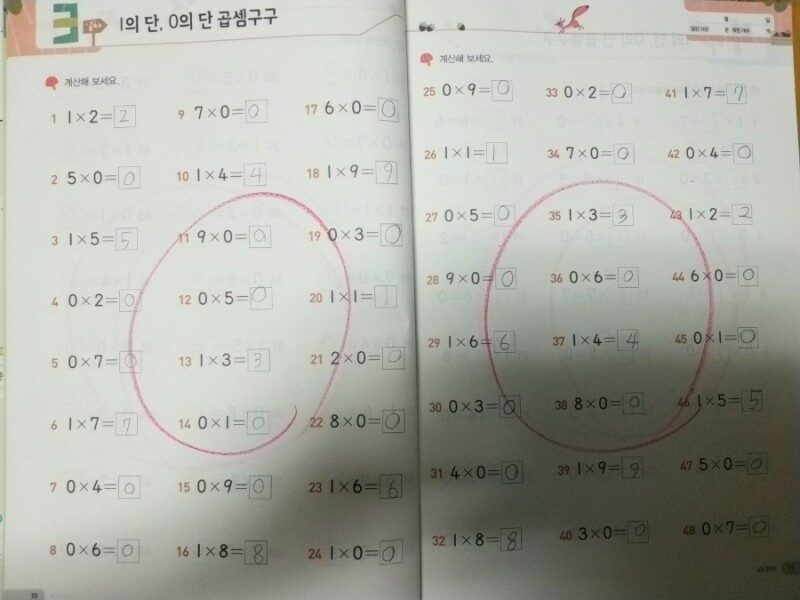 3 1의 단, 0의 단 곱셈구구
계산해 보세요.
1 1×2=2
2 5×0=0
3 1×5=5
4 0×2=0
5 0×7=0
6 1×7=7
7 0×4=0
8 0×6=0
9 7×0=0
10 1×4=4
11 9×0=0
12 0×5=0
13 1×3=3
14 0×1=0
15 0×9=0
16 1×8=8
17 6×0=0
18 1×9=9
19 0×3=0
20 1×1=1
21 2×0=0
22 8×0=0
23 1×6=6
24 1×0=0
10
월 일
분 개
계산해 보세요.
25 0×9=0
26 1×1=1
27 0×5=0
28 9×0=0
29 1×6=6
30 0×3=0
31 4×0=0
32 1×8=8
33 0×2=0
34 7×0=0
35 1×3=3
36 0×6=0
37 1×4=4
38 8×0=0
39 1×9=9
40 3×0=0
41 1×7=7
42 0×4=0
43 1×2=2
44 6×0=0
45 0×1=0
46 1×5=5
47 5×0=0
48 0×7=0